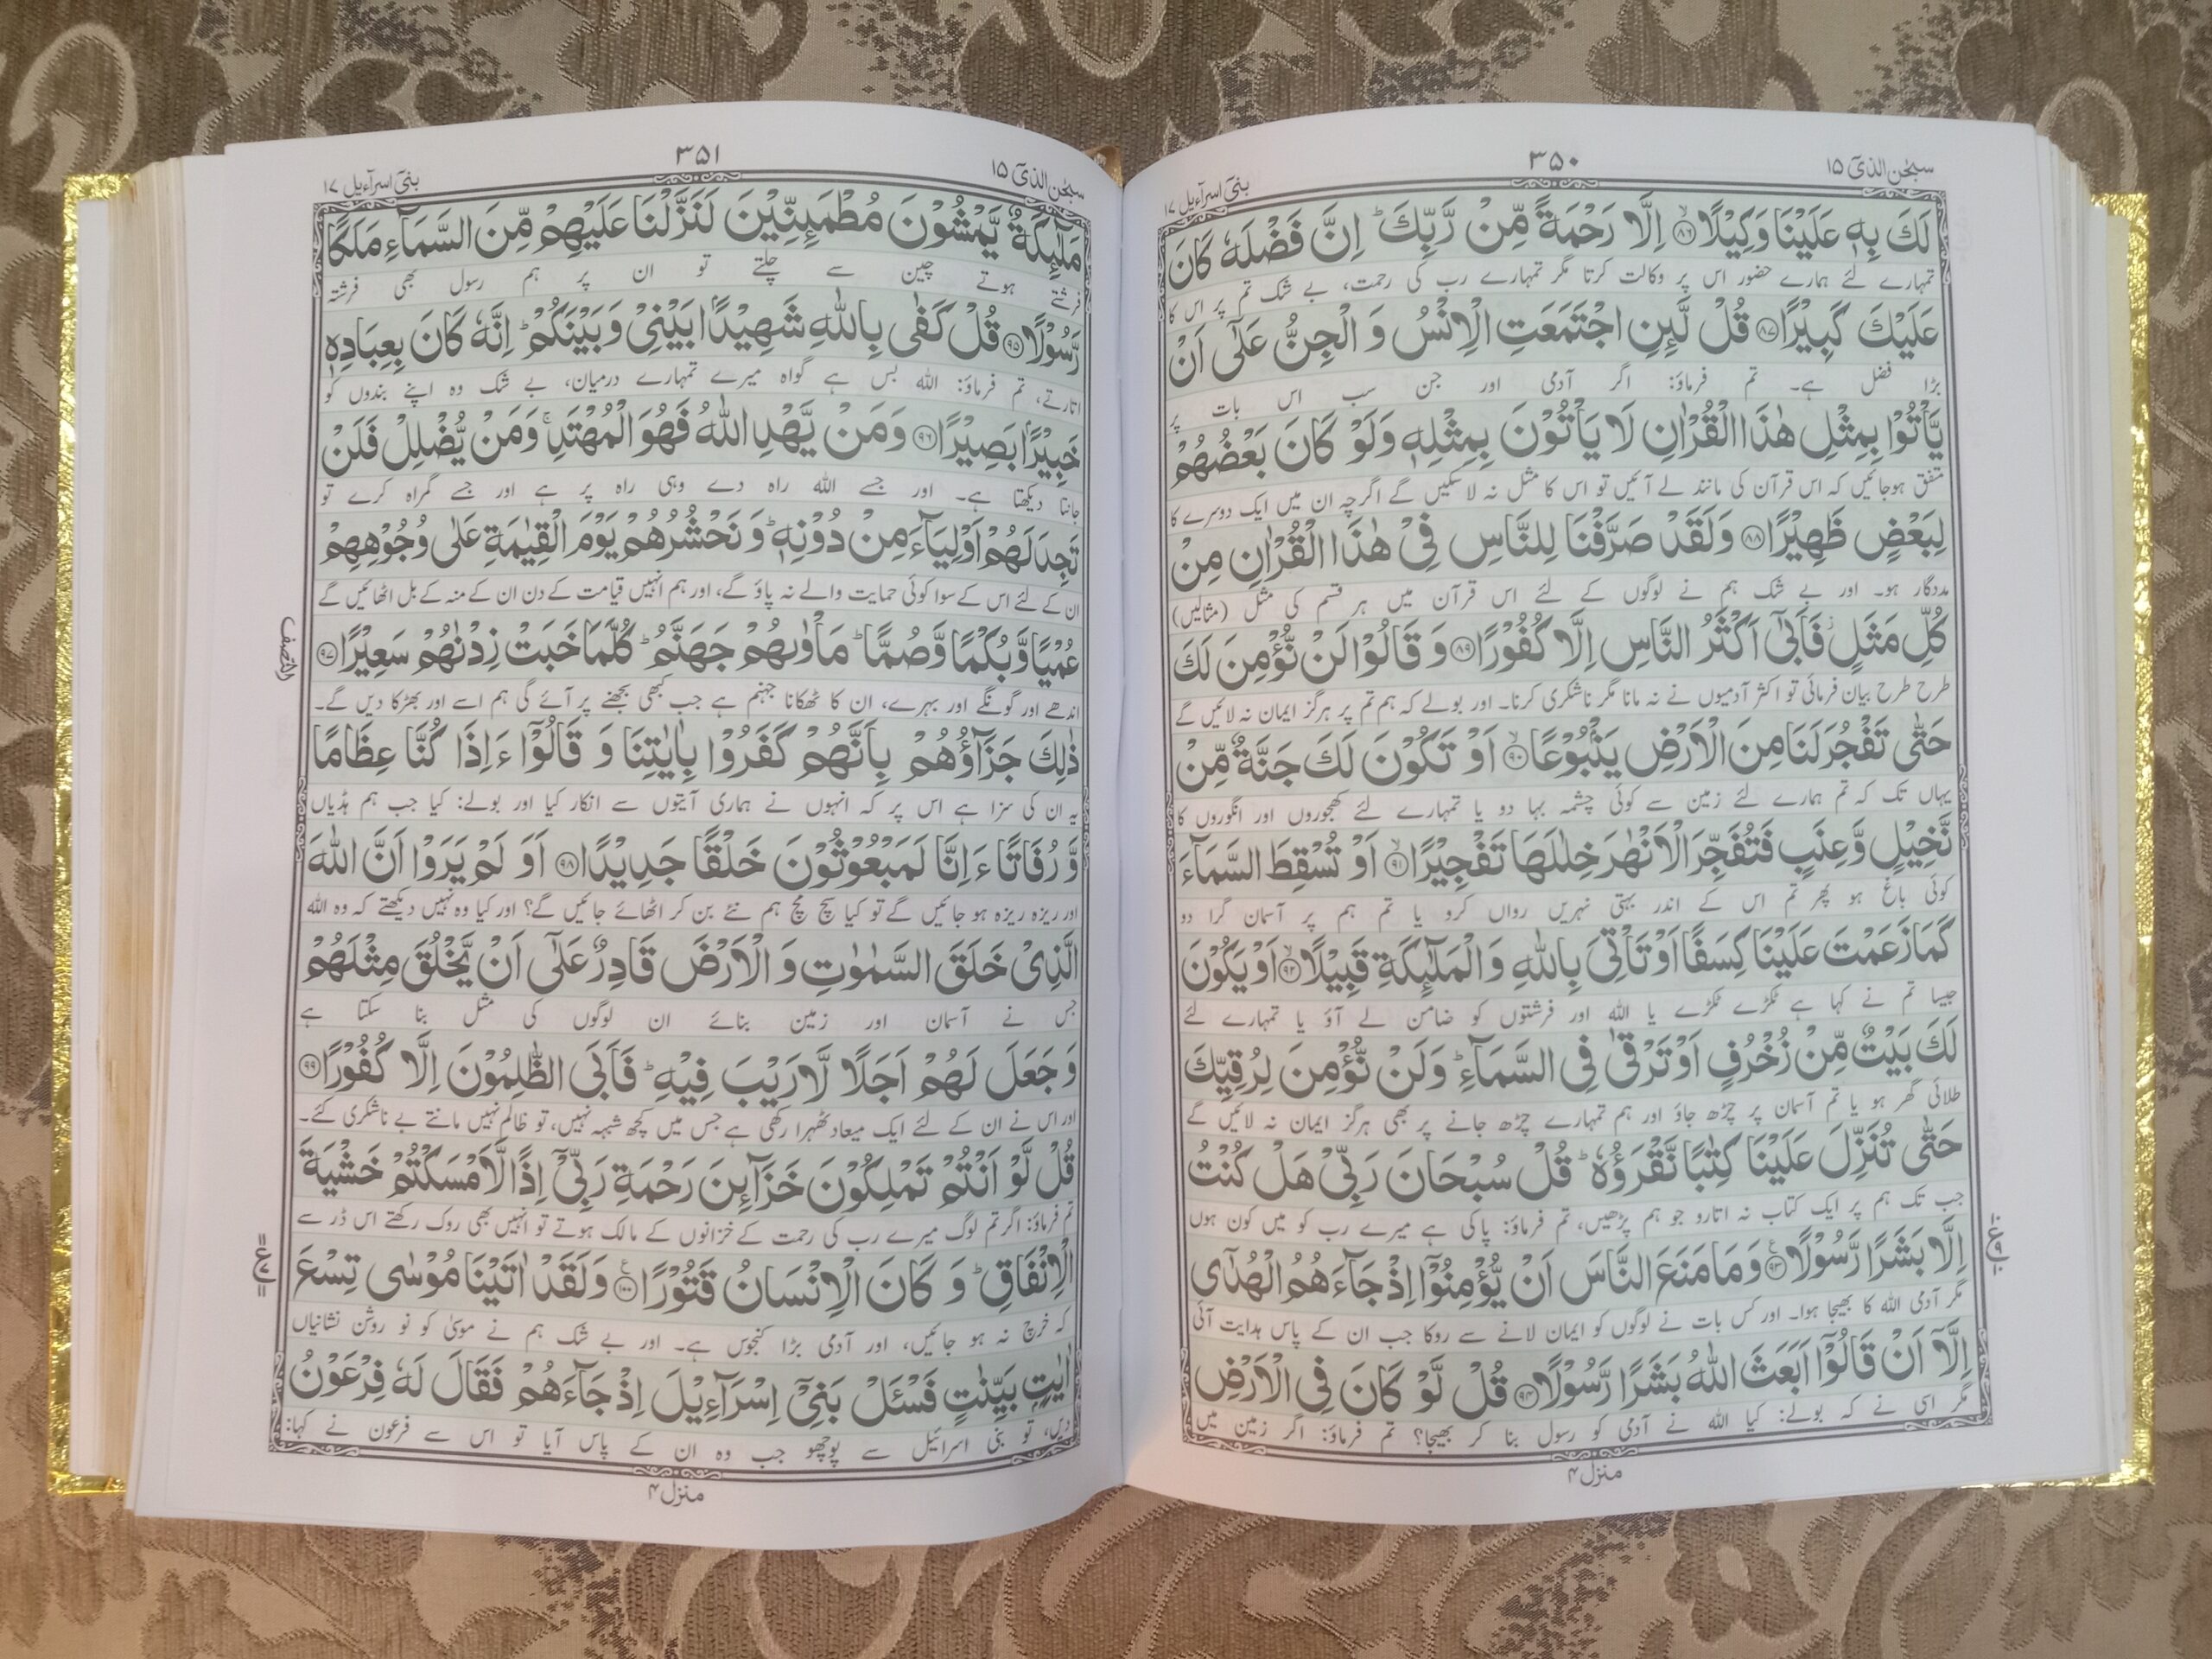 سبحٰن الذیٓ ۱۵
۳۵۰
بنیٓ اسرآءیل ۱۷
لَكَ بِهٖ عَلَيْنَا وَكِيْلًا ۙ‏﴿۸۶﴾ اِلَّا رَحْمَةً مِّنْ رَّبِّكَ ؕ اِنَّ فَضْلَهٗ كَانَ
تمہارے لئے ہمارے حضور اس پر وکالت کرتا مگر تمہارے رب کی رحمت، بے شک تم پر اس کا
عَلَيْكَ كَبِيْرًا ﴿۸۷﴾ قُلْ لَّئِنِ اجْتَمَعَتِ الْاِنْسُ وَ الْجِنُّ عَلٰٓى اَنْ
بڑا فضل ہے۔ تم فرماؤ: اگر آدمی اور جن سب اس بات پر
يَّاْتُوْا بِمِثْلِ هٰذَا الْقُرْاٰنِ لَا يَاْتُوْنَ بِمِثْلِهٖ وَلَوْ كَانَ بَعْضُهُمْ
متفق ہوجائیں کہ اس قرآن کی مانند لے آئیں تو اس کا مثل نہ لاسکیں گے اگرچہ ان میں ایک دوسرے کا
لِبَعْضٍ ظَهِيْرًا ﴿۸۸﴾ وَلَقَدْ صَرَّفْنَا لِلنَّاسِ فِيْ هٰذَا الْقُرْاٰنِ مِنْ
مددگار ہو۔ اور بے شک ہم نے لوگوں کے لئے اس قرآن میں ہر قسم کی مثل (مثالیں)
كُلِّ مَثَلٍ ؗ فَاَبٰىٓ اَكْثَرُ النَّاسِ اِلَّا كُفُوْرًا ﴿۸۹﴾ وَ قَالُوْا لَنْ نُّؤْمِنَ لَكَ
طرح طرح بیان فرمائی تو اکثر آدمیوں نے نہ مانا مگر ناشکری کرنا۔ اور بولے کہ ہم تم پر ہرگز ایمان نہ لائیں گے
حَتّٰى تَفْجُرَ لَنَا مِنَ الْاَرْضِ يَنْۢبُوْعًا ۙ‏﴿۹۰﴾ اَوْ تَكُوْنَ لَكَ جَنَّةٌ مِّنْ
یہاں تک کہ تم ہمارے لئے زمین سے کوئی چشمہ بہا دو یا تمہارے لئے کھجوروں اور انگوروں کا
نَّخِيْلٍ وَّعِنَبٍ فَتُفَجِّرَ الْاَنْهٰرَ خِلٰلَهَا تَفْجِيْرًا ۙ‏﴿۹۱﴾ اَوْ تُسْقِطَ السَّمَآءَ
کوئی باغ ہو پھر تم اس کے اندر بہتی نہریں رواں کرو یا تم ہم پر آسمان گرا دو
كَمَا زَعَمْتَ عَلَيْنَا كِسَفًا اَوْ تَاْتِيَ بِاللّٰهِ وَ الْمَلٰٓئِكَةِ قَبِيْلًا ۙ‏﴿۹۲﴾ اَوْ يَكُوْنَ
جیسا تم نے کہا ہے ٹکڑے ٹکڑے یا اللہ اور فرشتوں کو ضامن لے آؤ یا تمہارے لئے
لَكَ بَيْتٌ مِّنْ زُخْرُفٍ اَوْ تَرْقٰى فِي السَّمَآءِ ؕ وَلَنْ نُّؤْمِنَ لِرُقِيِّكَ
طلائی گھر ہو یا تم آسمان پر چڑھ جاؤ اور ہم تمہارے چڑھ جانے پر بھی ہرگز ایمان نہ لائیں گے
حَتّٰى تُنَزِّلَ عَلَيْنَا كِتٰبًا نَّقْرَؤُهٗ ؕ قُلْ سُبْحَانَ رَبِّيْ هَلْ كُنْتُ
جب تک ہم پر ایک کتاب نہ اتارو جو ہم پڑھیں، تم فرماؤ: پاکی ہے میرے رب کو میں کون ہوں
اِلَّا بَشَرًا رَّسُوْلًا ﴿۹۳﴾ وَمَا مَنَعَ النَّاسَ اَنْ يُّؤْمِنُوْٓا اِذْ جَآءَهُمُ الْهُدٰٓى
مگر آدمی اللہ کا بھیجا ہوا۔ اور کس بات نے لوگوں کو ایمان لانے سے روکا جب ان کے پاس ہدایت آئی
اِلَّآ اَنْ قَالُوْٓا اَبَعَثَ اللّٰهُ بَشَرًا رَّسُوْلًا ﴿۹۴﴾ قُلْ لَّوْ كَانَ فِي الْاَرْضِ
مگر اسی نے کہ بولے: کیا اللہ نے آدمی کو رسول بنا کر بھیجا؟ تم فرماؤ: اگر زمین میں
منزل ۴
سبحٰن الذیٓ ۱۵
۳۵۱
بنیٓ اسرآءیل ۱۷
مَلٰٓئِكَةٌ يَّمْشُوْنَ مُطْمَئِنِّيْنَ لَنَزَّلْنَا عَلَيْهِمْ مِّنَ السَّمَآءِ مَلَكًا
فرشتے ہوتے چین سے چلتے تو ان پر ہم رسول بھی فرشتہ
رَّسُوْلًا ﴿۹۵﴾ قُلْ كَفٰى بِاللّٰهِ شَهِيْدًۢا بَيْنِيْ وَ بَيْنَكُمْ ؕ اِنَّهٗ كَانَ بِعِبَادِهٖ
اتارتے، تم فرماؤ: اللہ بس ہے گواہ میرے تمہارے درمیان، بے شک وہ اپنے بندوں کو
خَبِيْرًۢا بَصِيْرًا ﴿۹۶﴾ وَ مَنْ يَّهْدِ اللّٰهُ فَهُوَ الْمُهْتَدِ ۚ وَمَنْ يُّضْلِلْ فَلَنْ
جانتا دیکھتا ہے۔ اور جسے اللہ راہ دے وہی راہ پر ہے اور جسے گمراہ کرے تو
تَجِدَ لَهُمْ اَوْلِيَآءَ مِنْ دُوْنِهٖ ؕ وَ نَحْشُرُهُمْ يَوْمَ الْقِيٰمَةِ عَلٰى وُجُوْهِهِمْ
ان کے لئے اس کے سوا کوئی حمایت والے نہ پاؤ گے، اور ہم انہیں قیامت کے دن ان کے منہ کے بل اٹھائیں گے
عُمْيًا وَّ بُكْمًا وَّ صُمًّا ؕ مَاْوٰىهُمْ جَهَنَّمُ ؕ كُلَّمَا خَبَتْ زِدْنٰهُمْ سَعِيْرًا ﴿۹۷﴾
اندھے اور گونگے اور بہرے، ان کا ٹھکانا جہنم ہے جب کبھی بجھنے پر آئے گی ہم اسے اور بھڑکا دیں گے۔
ذٰلِكَ جَزَآؤُهُمْ بِاَنَّهُمْ كَفَرُوْا بِاٰيٰتِنَا وَ قَالُوْٓا ءَاِذَا كُنَّا عِظَامًا
یہ ان کی سزا ہے اس پر کہ انہوں نے ہماری آیتوں سے انکار کیا اور بولے: کیا جب ہم ہڈیاں
وَّ رُفَاتًا ءَاِنَّا لَمَبْعُوْثُوْنَ خَلْقًا جَدِيْدًا ﴿۹۸﴾ اَوَ لَمْ يَرَوْا اَنَّ اللّٰهَ
اور ریزہ ریزہ ہو جائیں گے تو کیا سچ مچ ہم نئے بن کر اٹھائے جائیں گے؟ اور کیا وہ نہیں دیکھتے کہ وہ اللہ
الَّذِيْ خَلَقَ السَّمٰوٰتِ وَ الْاَرْضَ قَادِرٌ عَلٰٓى اَنْ يَّخْلُقَ مِثْلَهُمْ
جس نے آسمان اور زمین بنائے ان لوگوں کی مثل بنا سکتا ہے
وَ جَعَلَ لَهُمْ اَجَلًا لَّا رَيْبَ فِيْهِ ؕ فَاَبَى الظّٰلِمُوْنَ اِلَّا كُفُوْرًا ﴿۹۹﴾
اور اس نے ان کے لئے ایک میعاد ٹھہرا رکھی ہے جس میں کچھ شبہ نہیں، تو ظالم نہیں مانتے بے ناشکری کئے۔
قُلْ لَّوْ اَنْتُمْ تَمْلِكُوْنَ خَزَآئِنَ رَحْمَةِ رَبِّيْٓ اِذًا لَّاَمْسَكْتُمْ خَشْيَةَ
تم فرماؤ: اگر تم لوگ میرے رب کی رحمت کے خزانوں کے مالک ہوتے تو انہیں بھی روک رکھتے اس ڈر سے
الْاِنْفَاقِ ؕ وَ كَانَ الْاِنْسَانُ قَتُوْرًا ﴿۱۰۰﴾ وَلَقَدْ اٰتَيْنَا مُوْسٰى تِسْعَ
کہ خرچ نہ ہو جائیں، اور آدمی بڑا کنجوس ہے۔ اور بے شک ہم نے موسیٰ کو نو روشن نشانیاں
اٰيٰتٍۭ بَيِّنٰتٍ فَسْـَٔلْ بَنِيْٓ اِسْرَآءِيْلَ اِذْ جَآءَهُمْ فَقَالَ لَهٗ فِرْعَوْنُ
دیں، تو بنی اسرائیل سے پوچھو جب وہ ان کے پاس آیا تو اس سے فرعون نے کہا:
النصف
منزل ۴